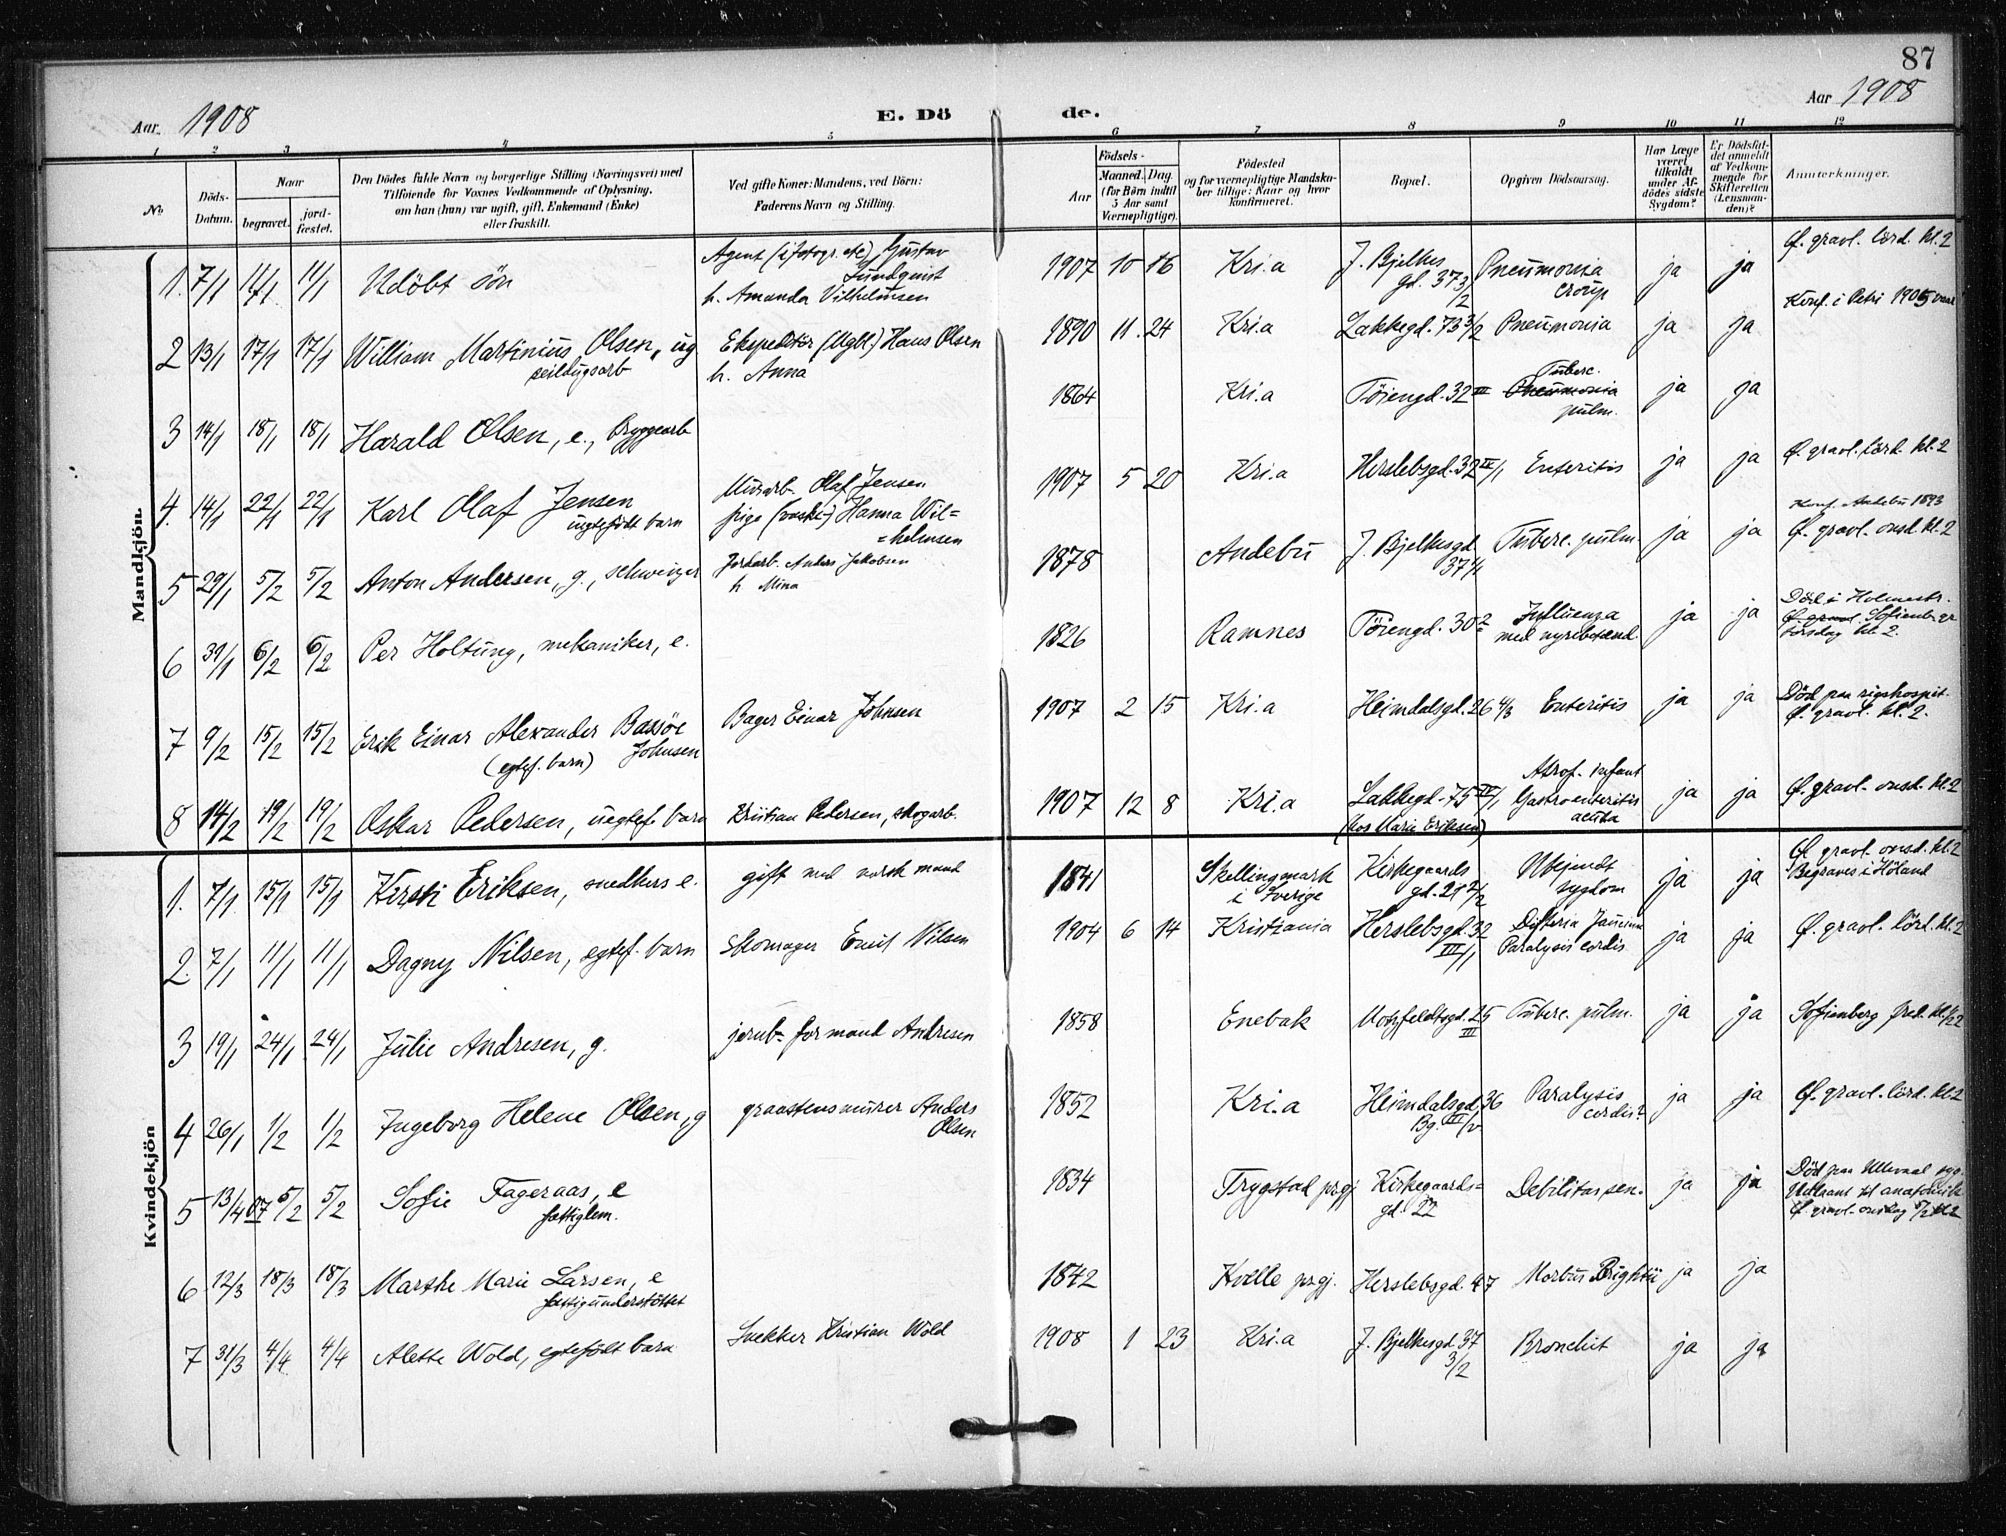 87
Aar 1908
E. Dö de.
Aar 1908
1 2 3 4 5 6 7 8 9 10 11 12
No.
Döds-Datum.
Naar
begravet.
jord-fæstet.
Den Dödes fulde Navn og borgerlige Stilling (Næringsvei) med
Tilföiende for Voxnes Vedkommende af Oplysning,
om han (hun) var ugift, gift, Enkemand (Enke)
eller fraskilt.
Ved gifte Koner: Mandens, ved Börn:
Faderens Navn og Stilling.
Födsels-
Aar
Maaned. Dag.
(for Börn indtil
5 Aar samt
Værnepligtige).
Födested
og for værnepligtige Mandska-
ber tillige: Naar og hvor
konfirmeret.
Bopæl.
Opgiven Dödsaarsag.
Har Læge
været
tilkaldt
under Af-
dödes sidste
Sygdom?
Er Dödsfal-
det anmeldt
af Vedkom-
mende for
Skifteretten
(Lensman-
den)?
Anmærkninger.
Mandkjön.
1. 7/1 11/1 11/1 Udöbt sön
Agent (i fotogr. etc) Gustav
Lundqvist
h. Amanda Vilhelmsen
1907 10 16 Kri.a J. Bjelkes
gd. 37 3/2
Pneumonia
croup
ja ja
Ø. gravl. lörd. kl. 2
2 13/1 17/1 17/1 William Martinius Olsen, ug
seildugsarb
Ekspeditör (Mgbl.) Hans Olsen
h. Anna
1890 11. 24 Kri.a Lakkegd. 73 3/2 Pneumonia ja ja
Konf. i Petri 1905
3 14/1 18/1 18/1 Harald Olsen, e., bryggearb
1864 Kri.a Töiengd. 32 III Tuberc.
Pneumonia
pulm.
ja ja
4. 14/1 22/1 22/1 Karl Olaf Jensen
uegtefödt barn
Murarb. Olaf Jensen
pige (vaske-) Hanna Wil=
=helmsen
1907 5 20 Kri.a Herslebsgd. 32 III/1 Enteritis ja ja
Ø. gravl. lörd. kl. 2
5 29/1 5/2 5/2 Anton Andersen, g., schweizer
Jordarb. Anders Jakobsen
h. Mina
1878 Andebu J. Bjelkesgd.
37 4/1
Tuberc. pulm. ja ja
Konf. Andebu 1893
Ø. gravl. onsd. kl. 2
6 31/1 6/2 6/2 Per Holtung, mekaniker, e.
1826 Ramnes Töiengd. 30 2 Influenza
med nyrebetænd.
ja ja
Död i Holmestr.
Ø. gravl. Sofienb. gr
torsdag kl. 2.
7 9/2 15/2 15/2 Erik Einar Alexander Bassöe
(egtef. barn) Johnsen
Bager Einar Johnsen
1907 2 15 Kri.a Heimdalsgd. 26 4/3 Enteritis ja ja
Död paa rigshospit.
Ø. gravl. kl. 2.
8 14/2 19/2 19/2 Oskar Pedersen, uegtef. barn Kristian Pedersen, skogarb.
1907 12 8 Kri.a Lakkegd. 75 IV/1
(hos Marie Eriksen)
Atrof. infant
Gastroenteritis
acuta
ja ja
Ø. gravl. onsd. kl. 2
Kvindekjön
1. 7/1 15/1 15/1 Kirsti Eriksen, snedkers e. gift med norsk mand
1841 Skellingmark
i Sverige
Kirkegaards
gd. 21 2/2
Ubkjendt
sygdom
ja ja
Ø. gravl. onsd. kl. 2
Begraves i Höland
2. 7/1 11/1 11/1 Dagny Nilsen, egtef. barn Skomager Emil Nilsen
1904 6 14 Kristiania Herslebsgd. 32
III/1
Difteria faucium
Paralysis cordis
ja ja
Ø. gravl. lörd. kl. 2
3 19/1 24/1 24/1 Julie Andresen, g. jernb. formand Andresen
1858 Enebak Motzfeldtsgd. 25
III
Tuberc. pulm. ja ja
Sofienberg fred. kl. 1/2 2
4 26/1 1/2 1/2 Ingeborg Helene Olsen, g graastensmurer Anders
Olsen
1852 Kri.a Heimdalsgd. 36
Bg. III/v
Paralysis
cordis?
ja ja
Ø. gravl. lörd. kl. 2
5 13/4 07 5/2 5/2 Sofie Fageraas, e
fattiglem.
1834 Trygstad prgj. Kirkegaards=
gd. 22
Debilitas sen. ja ja
Död paa Ullevaal syg.
Udlaant til anatomik
Ø. gravl. onsdag 5/2 kl 2
6 12/3 18/3 18/3 Marthe Marie Larsen, e
fattigunderstöttet
1842 Hvelle prgj. Herslebsgd. 47 Morbus Brightii ja ja
7 31/3 4/4 4/4 Alette Wold, egtefödt barn Snekker Kristian Wold
1908 1 23 Kri.a J. Bjelkesgd. 37
3/2
Bronchit ja ja